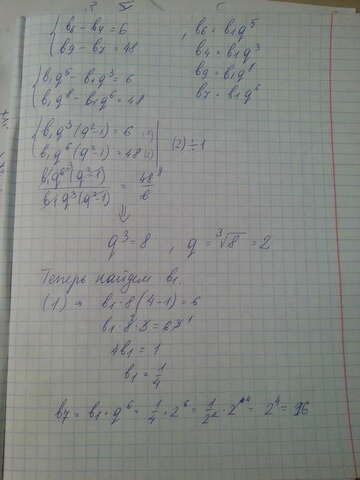 b₆ - b₄ = 6 , b₆ = b₁q⁵
b₉ - b₇ = 48 b₄ = b₁q³
b₁q⁵ - b₁q³ = 6 b₉ = b₁q⁸
b₁q⁸ - b₁q⁶ = 48 b₇ = b₁q⁶
b₁q³(q²-1) = 6 (1)
b₁q⁶(q²-1) = 48 (2) (2) ÷ 1
b₁q⁶ ³(q²-1) / b₁q³(q²-1) = 48 ⁸ / 6
⇓
q³ = 8 , q = ³√8 = 2
Теперь найдем b₁.
(1) ⇒ b₁·8(4-1) = 6
b₁·8·3 = 6
4b₁ = 1
b₁ = 1/4
b₇ = b₁·q⁶ = 1/4 · 2⁶ = 1/2² · 2⁶ = 2⁴ = 96